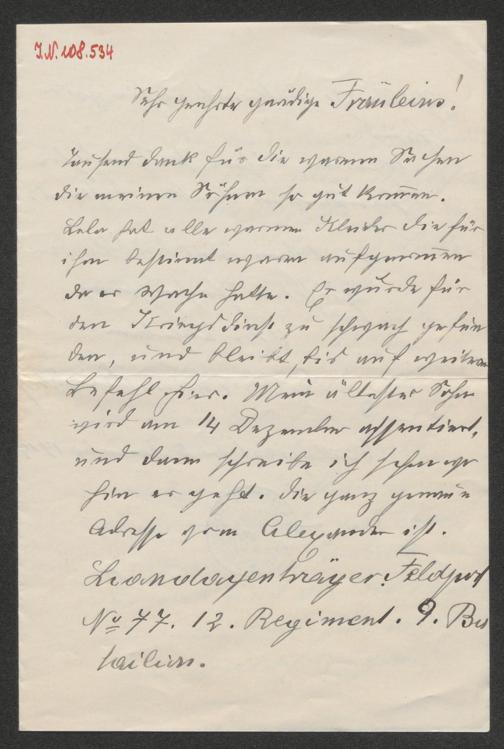 I.N. 108.534
Sehr geehrte gnädige Fräuleins!
Tausend dank für die warmen Sachen
die meinen Söhnen so gut kommen.
Bela hat alle warmen Kleider die für
ihn bestimmt waren aufgenommen
da er Wache hatte. Er wurde für
den Kriegsdienst zu schwach gefun
den, und bleibt, bis auf weiteren
Befehl hier. Mein ältester Sohn
wird am 14 Dezember assentiert,
und dann schreibe ich schon wo
hin er geht. Die ganz genaue
Adresse vom Alexander ist.
Feldpost
No 77. 12. Regiment. 9. Ba
tailion.